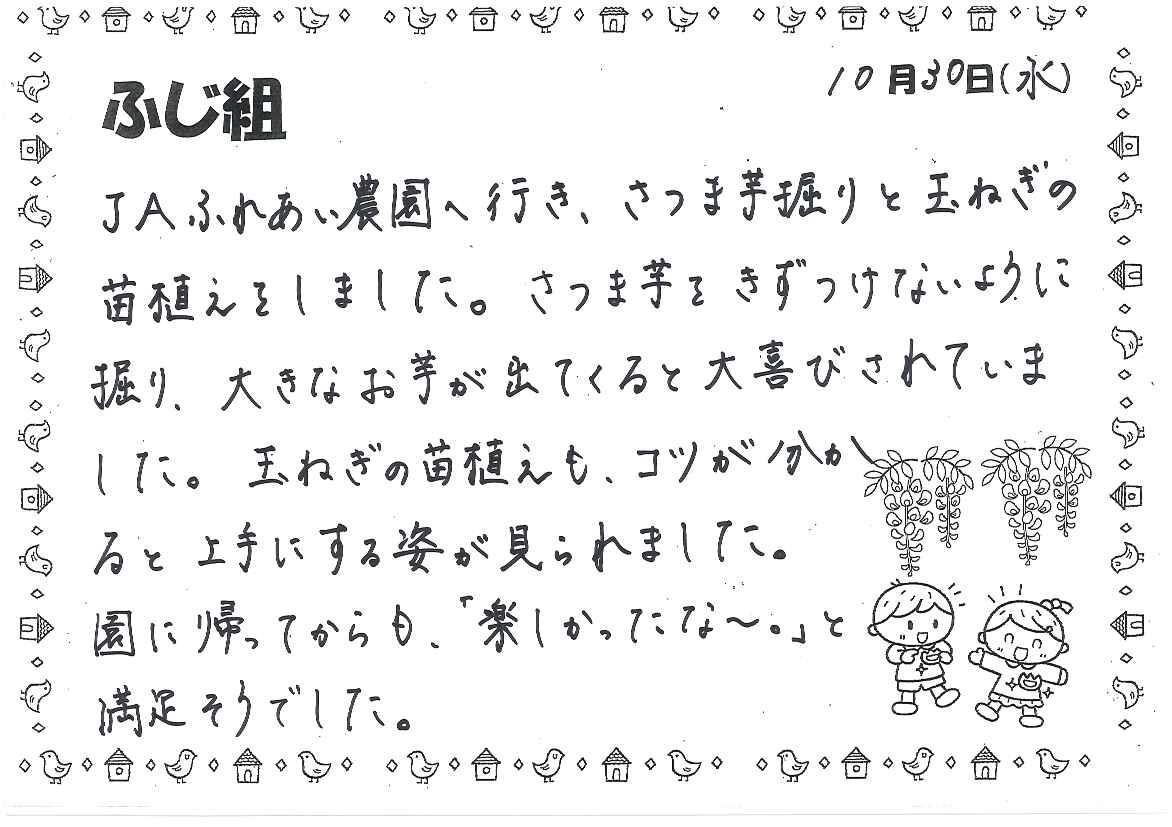 ふじ組
10月30日(水)
JAふれあい農園へ行き、さつま芋掘りと玉ねぎの
苗植えをしました。さつま芋をきずつけないように
掘り、大きなお芋が出てくると大喜びされていま
した。玉ねぎの苗植えも、コツが分か
ると上手にする姿が見られました。
園に帰ってからも、「楽しかったな〜。」と
満足そうでした。